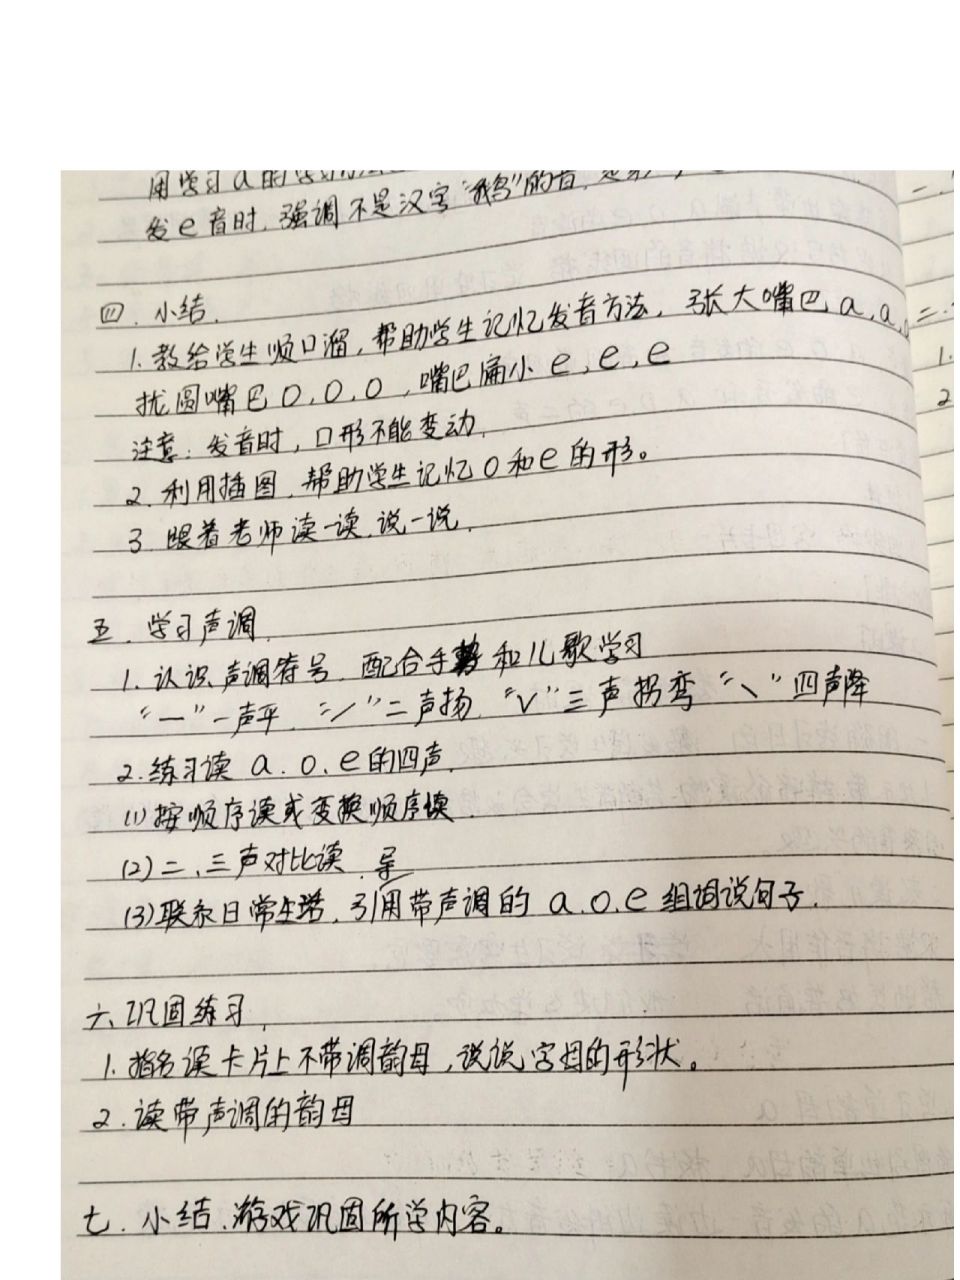 用学习a的学习方法
发e音时,强调不是汉字“鹅”的音,
四.小结.
1.教给学生顺口溜,帮助学生记忆发音方法,张大嘴巴a,a,
拢圆嘴巴o,o,o,嘴巴扁小e,e,e
注意:发音时,口形不能变动.
2.利用插图,帮助学生记忆o和e的形。
3.跟着老师读一读.说一说.
五.学习声调.
1.认识声调符号,配合手势和儿歌学习
“一”一声平.“ˊ”二声扬.“ˇ”三声拐弯“ˋ”四声降
2.练习读a.o.e的四声.
(1)按顺序读或变换顺序读.
(2)二、三声对比读.
(3)联系日常生活,引用带声调的a.o.e组词说句子.
六.巩固练习.
1.指名读卡片上不带调韵母,说说字母的形状。
2.读带声调的韵母
七.小结.游戏巩固所学内容。
二.
1.
2